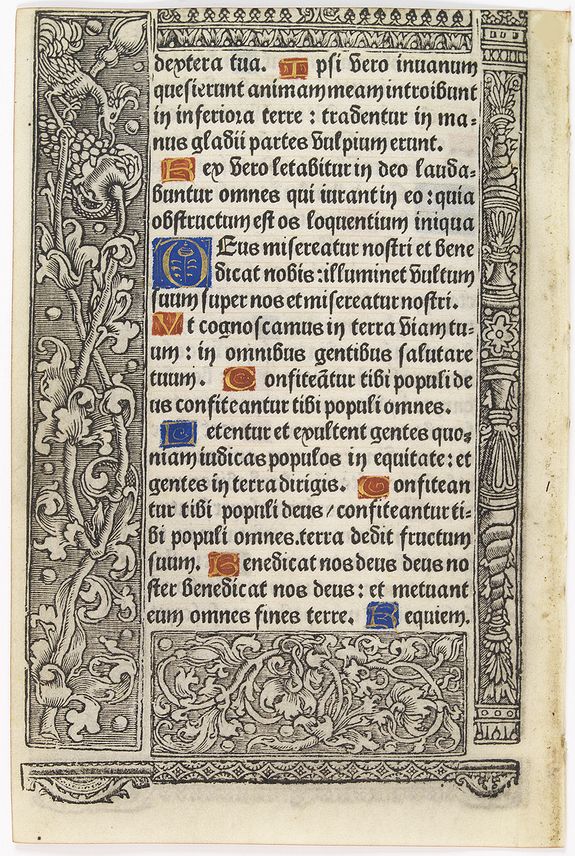 dextera tua. Ipsi vero inuanum
quesierunt animam meam introibunt
in inferiora terre : tradentur in ma-
nus gladii partes vulpium erunt.
Rex vero letabitur in deo lauda-
buntur omnes qui iurant in eo : quia
obstructum est os loquentium iniqua
DEus misereatur nostri et bene
dicat nobis : illuminet vultum
suum super nos et misereatur nostri.
Vt cognoscamus in terra viam tu-
um : in omnibus gentibus salutare
tuum. Confiteātur tibi populi de
us confiteantur tibi populi omnes.
Letentur et exultent gentes quo-
niam iudicas populos in equitate : et
gentes in terra dirigis. Confitean
tur tibi populi deus / confiteantur ti-
bi populi omnes. terra dedit fructum
suum. Benedicat nos deus deus no
ster benedicat nos deus : et metuant
eum omnes fines terre. Requiem.